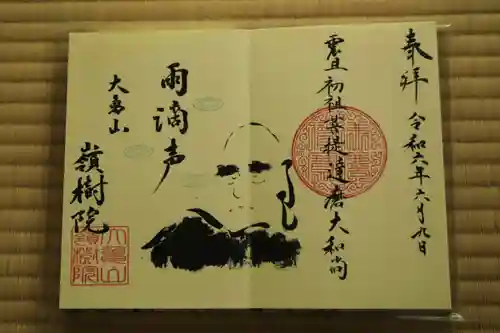 奉拝
令和六年六月九日
震旦初祖菩提達磨大和尚
雨滴声
大亀山
嶺樹院
大亀山
嶺樹院